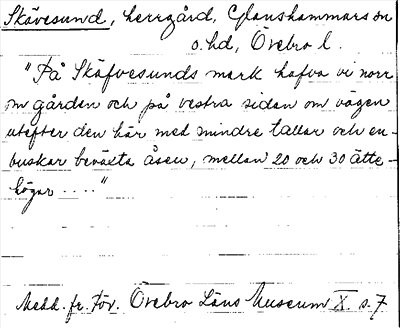 Skävesund, herrgård, Glanshammars sn
o. hd, Örebro l.
"På Skäfvesunds mark hafva vi norr
om gården och på vestra sidan om vägen
utefter den här med mindre tallar och en-
buskar beväxta åsen, mellan 20 och 30 ätte-
högar ...."
Medd. fr. För. Örebro Läns Museum X s. 7